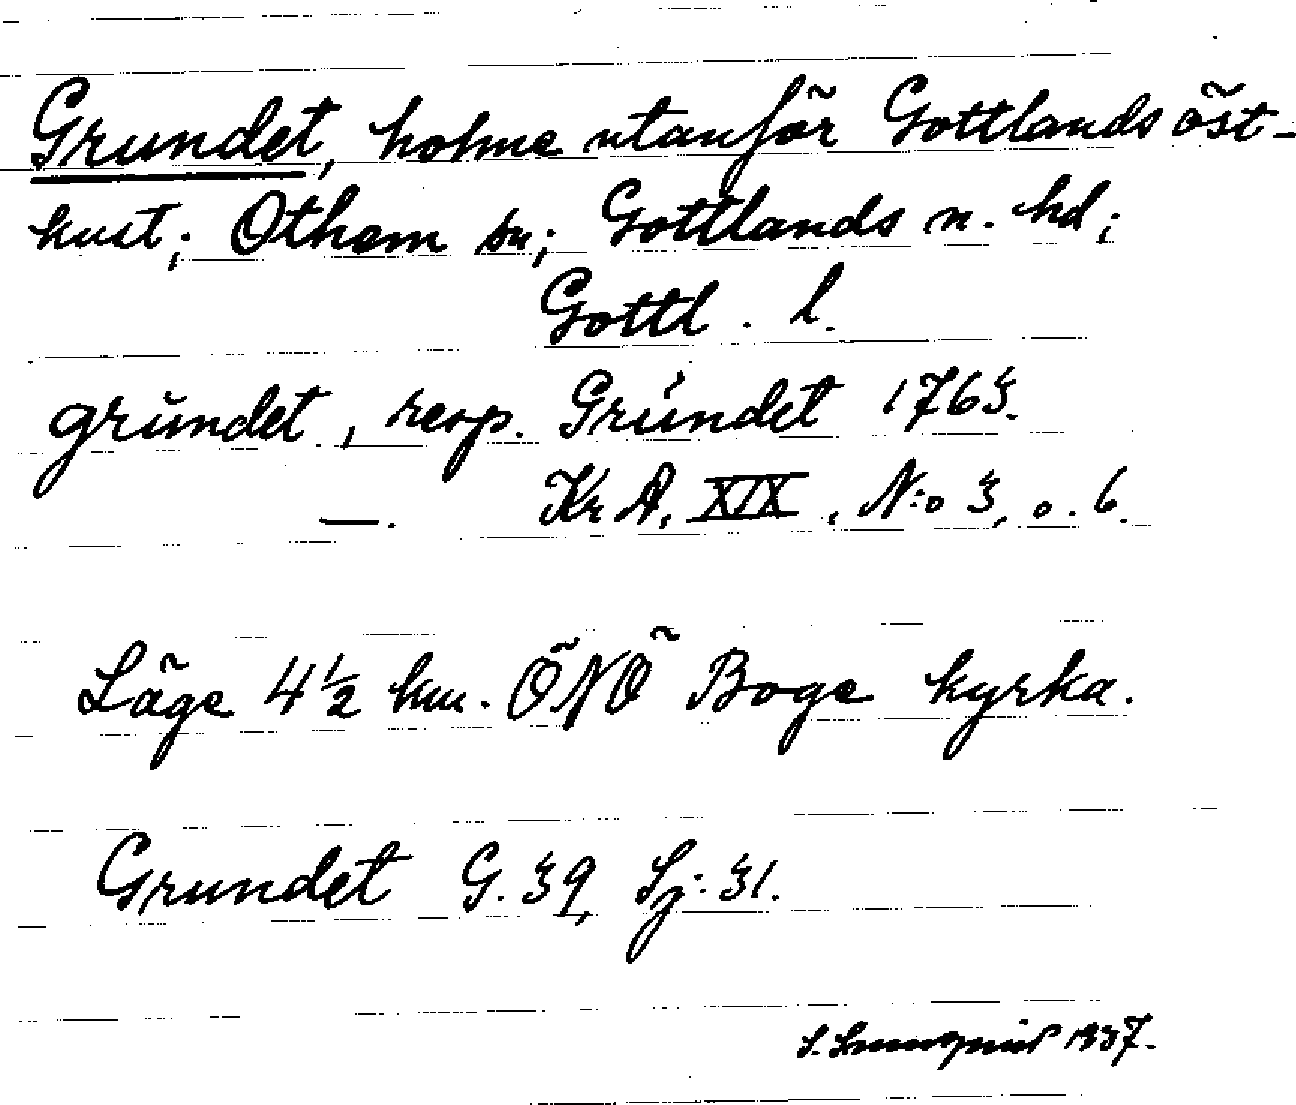 Grundet, holme utanför Gottlands öst-
kust; Othem sn; Gottlands n. hd;
Gottl. l.
grŭndet, resp. Grŭndet 1763.
—. Kr A, XIX, N:o 3, o. 6.
Läge 4 1/2 km. ÖNÖ Boge kyrka.
Grundet G. 39, Sj: 31.
S. 1937.